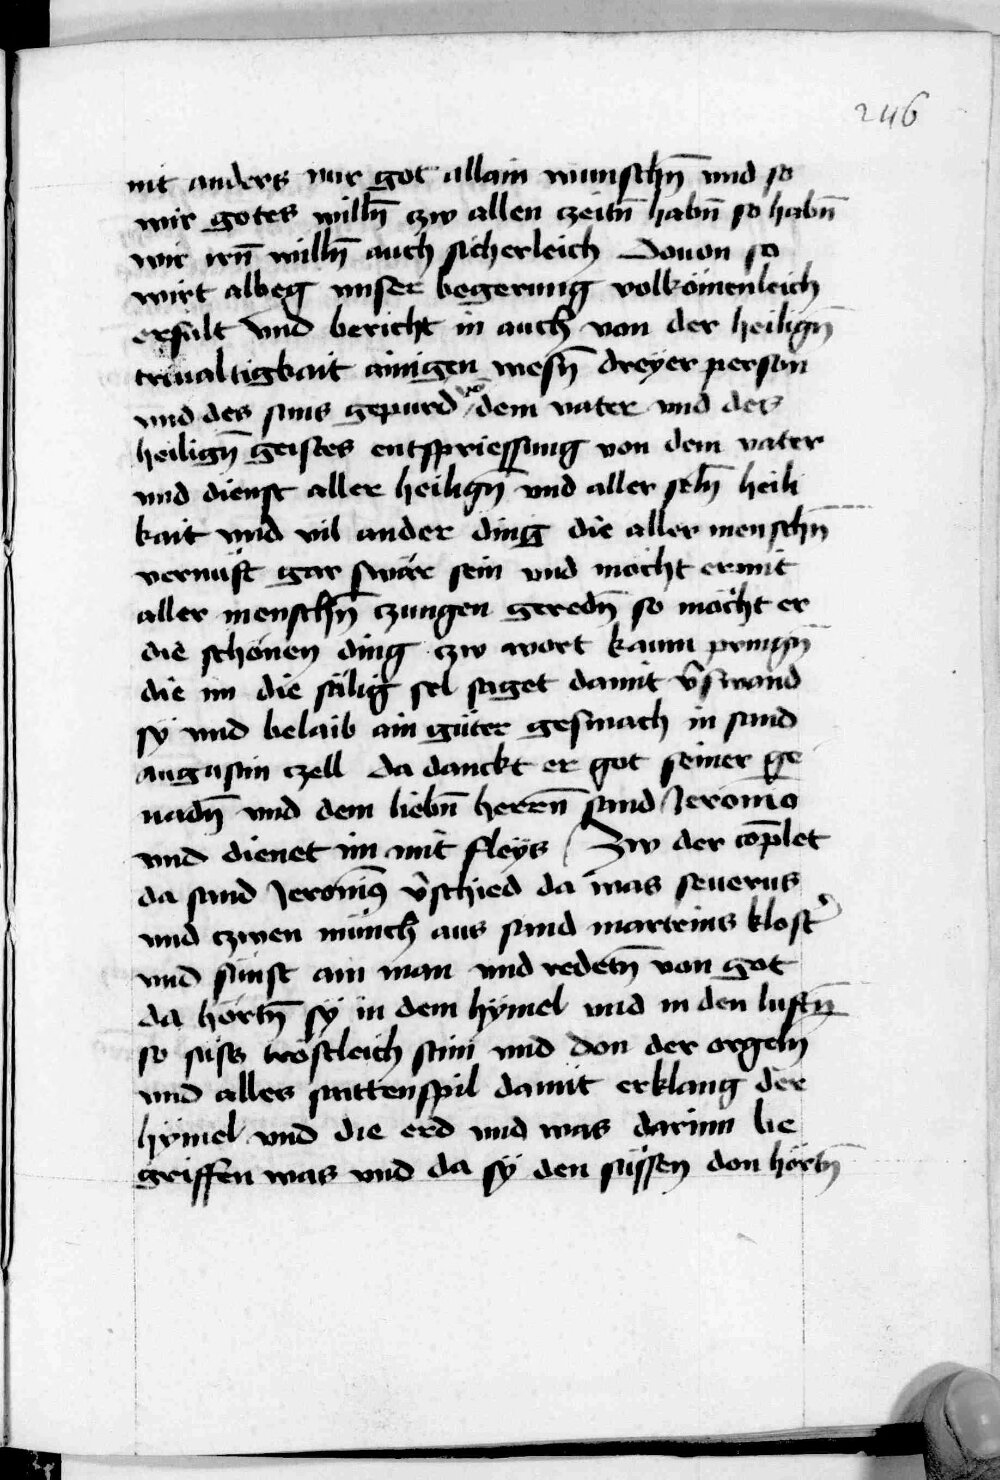 246
nit anders nur got allain wunschn̄ vnd so
wir gotes willn̄ czw allen czeitn̄ habn̄ so habn̄
wir irn̄ willn̄ auch sicherleich Douon so
wirt albeg vnser begerung volkömenleich
erfült vnd bericht in auch von der heilign̄
triualtigkait ainigen wesn̄ dreyer person
vnd des suns gepurd vō dem vater vnd des
heilign̄ geistes entspriessung von dem vater
vnd dienst aller heilign̄ vnd aller seln̄ heili
kait vnd vil ander ding die aller menschn̄
vernuft gar swär sein vnd möcht er mit
aller menschn̄ czungen geredn̄ so möcht er
die schönen ding czw wort kaum pringn̄
die im die sälig sel saget damit v̄swand
sy vnd belaib ain güter gesmach in sand
augustin czell da danckt er got seiner ge
nadn̄ vnd dem liebn̄ herrn̄ sand Jeronimo
vnd dienet im mit fleys Zw der cōplet
da sand Jeronimꝰ v̄schied da was seuerus
vnd czwen münch aus sand marteins klost̾
vnd sunst ain man vnd redetn̄ von got
da hörtn̄ sy in dem hymel vnd in den luftn̄
so süss tröstleich stim vnd don der orgeln
vnd alles saittenspil damit erklang der
hymel vnd die erd vnd was darinn be
griffen was vnd da sy den süssen don hörtn̄